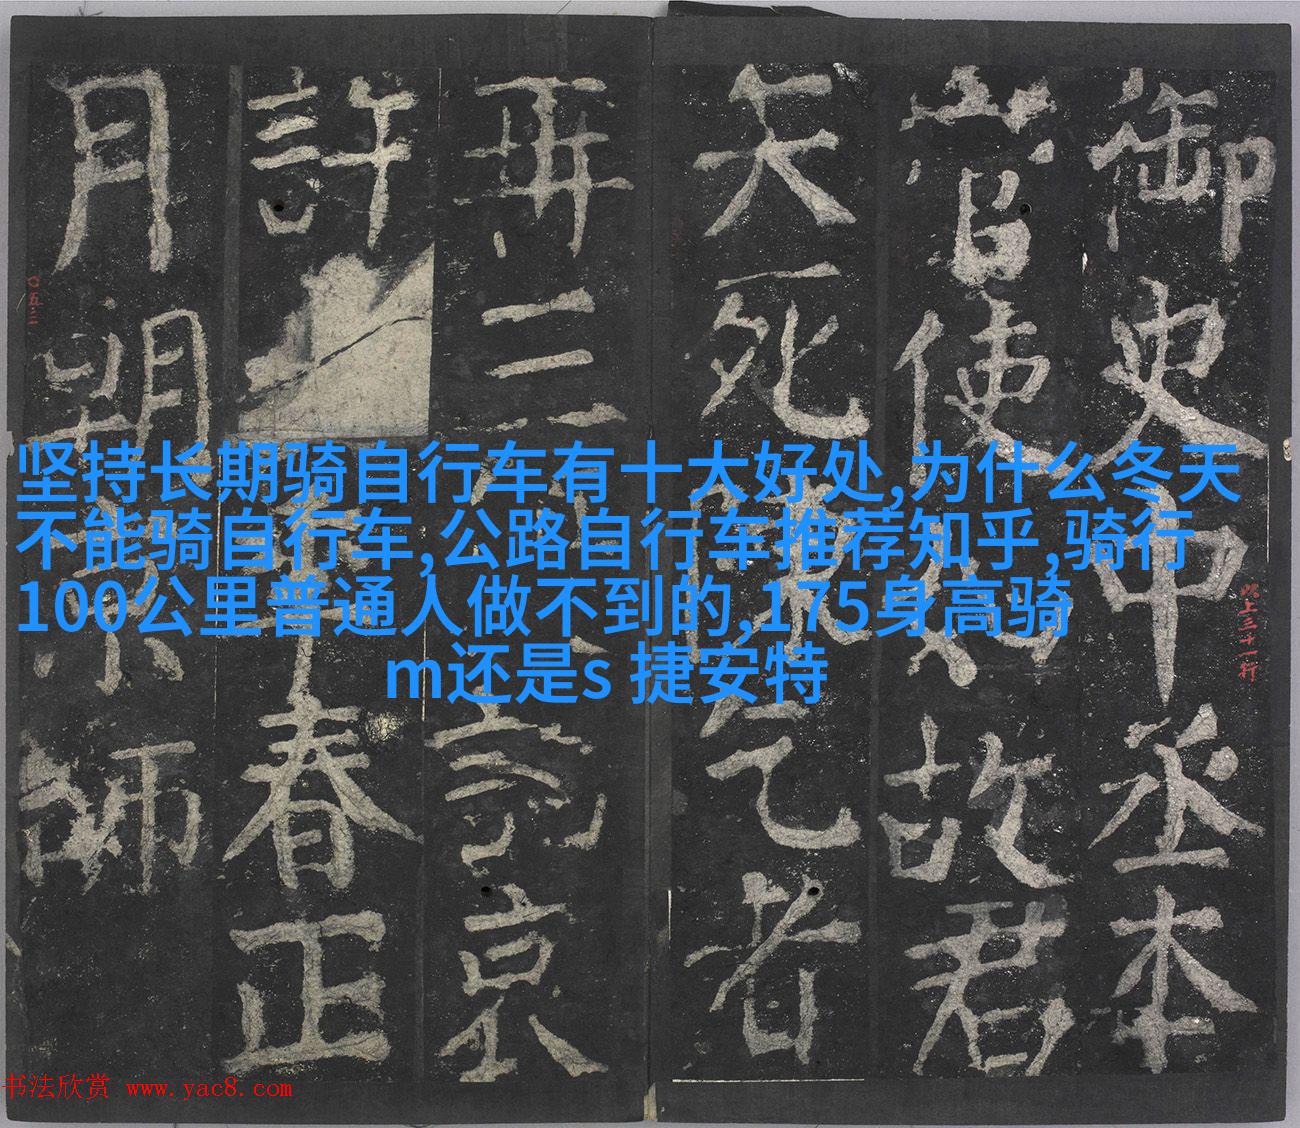 御史中丞本
使 故君
死 乞者
再三 京
許 春正
月朔京師
以上三十一行
〇五三
坚持长期骑自行车有十大好处,为什么冬天
不能骑自行车,公路自行车推荐知乎,骑行
100公里普通人做不到的,175身高骑
m还是s 捷安特
书法欣赏 www.yac8.com